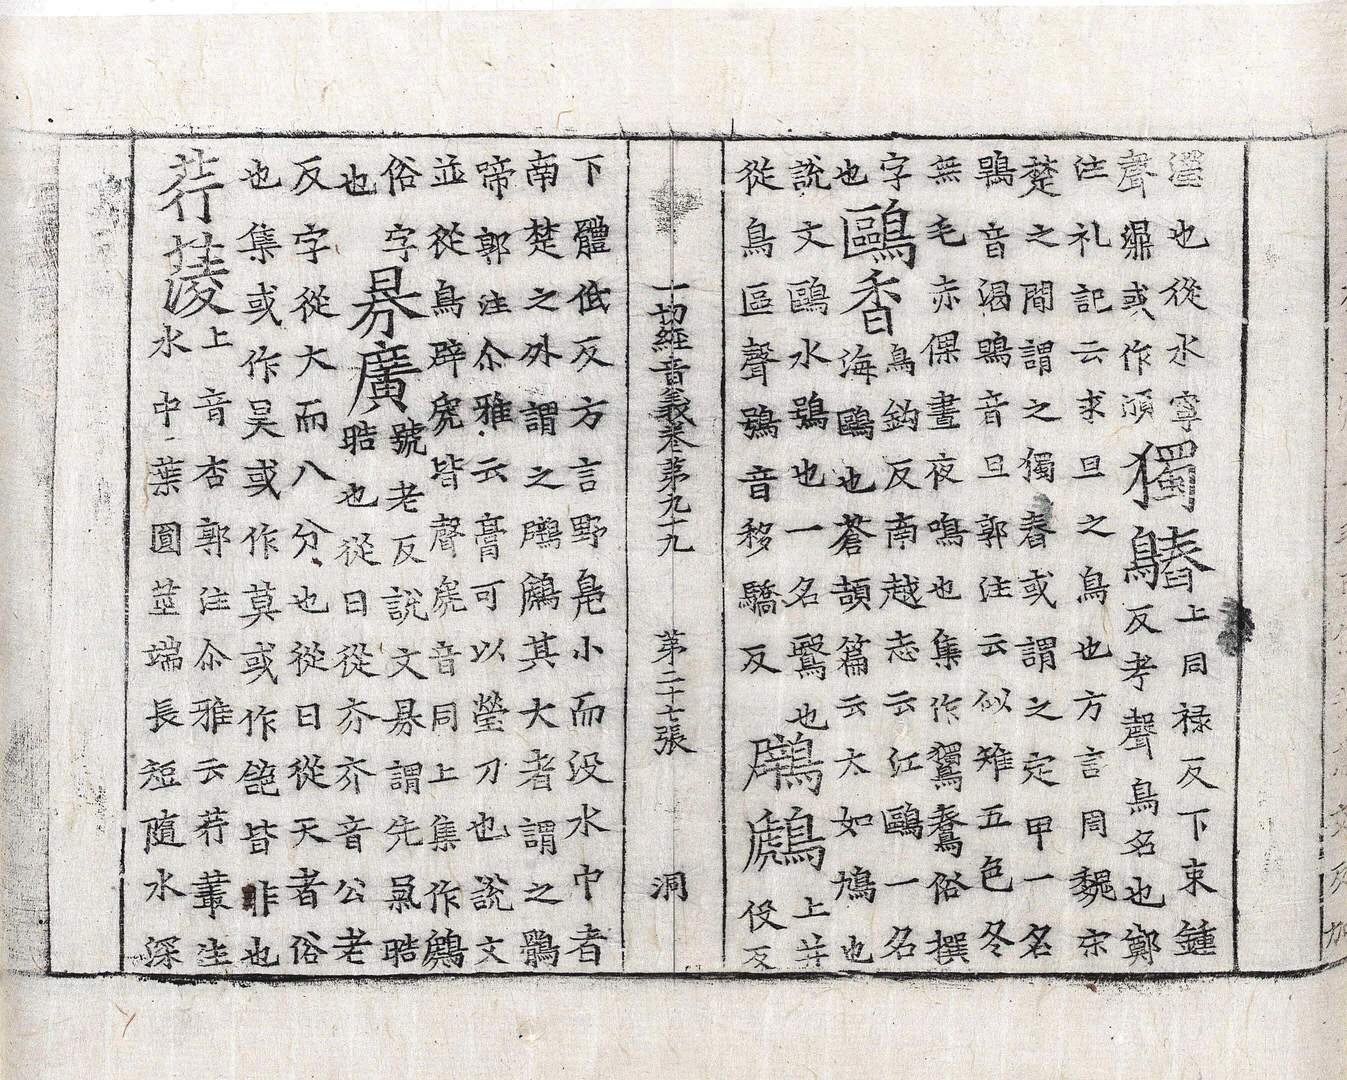 濘也從水寧
聲濕或作湏獨䳠上同禄反下束鍾
反考聲鳥名也鄭
注礼記云求旦之鳥也方言周魏宋
楚之間謂之獨舂或謂之定甲一名
鶡音渴鴠音旦郭注云似雉五色冬
無毛赤倮晝夜鳴也集作鸀鷾俗撰
字鷗香鳥鈎反南越志云江鷗一名
海鷗也蒼頡篇云大如鳩也
說文鷗水鴞也一名鷖也
從鳥區聲鴞音移驕反鸊鷉上并
伇反
下體低反方言野鳧小而没水中者
南楚之外謂之鸊鷉其大者謂之鶻
啼郭注尒雅云膏可以瑩刀也說文
並從鳥辟虒皆聲虒音同上集作鷉
俗字昦廣號老反說文昦謂先氣晧
晧也從日從夰夰音公老
反字從大而八分也從日從天者俗
也集或作昊或作莫或作皰皆非也
荇菨上音杏郭注尒雅云荇叢生
水中葉圓莖端長短隨水深
一切經音義卷第九十九 第二十七張 洞